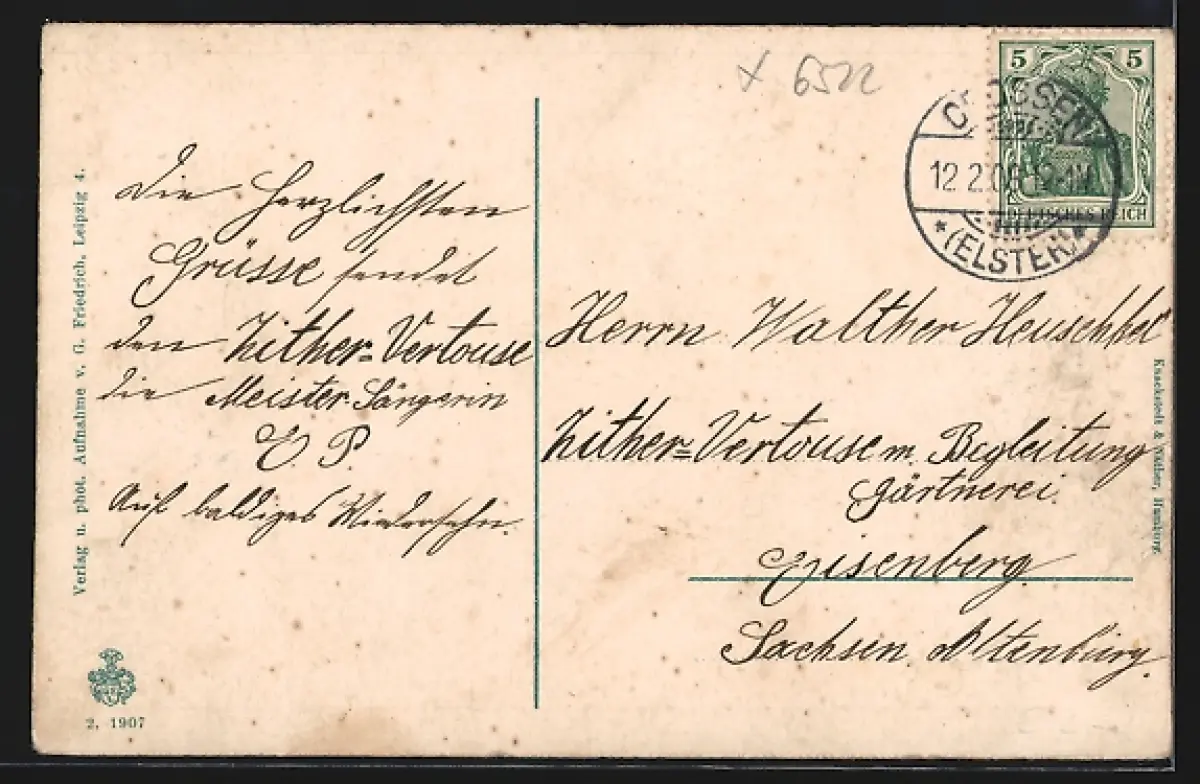 x 6522
5 5
DEUTSCHES REICH
CROSSEN
12.2.08 12-1N
* (ELSTER) *
Die herzlichsten
Grüsse sendet
den Zither=Vertouse
die Meister Sängerin
E. P.
Auf baldiges Wiedersehn.
Herrn Walther Heuschkel
Zither=Vertouse m. Begleitung
Gärtnerei.
Eisenberg
Sachsen Altenburg.
Verlag u. phot. Aufnahme v. G. Friedrich, Leipzig 4.
2, 1907
Knackstedt & Näther, Hamburg.